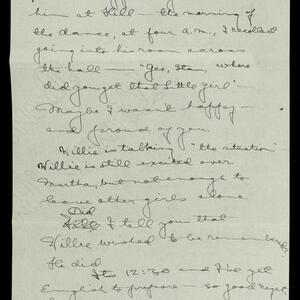 him at Hill — the morning of
the dance, at four a.m., I recollect
going into his room across
the hall — "Gee, Stan, where
did you get that little girl" —
Maybe I wasn't happy —
and proud of you.
Willie is talking "the situation"
Willie is still excited over
Martha, but not enough to
leave other girls alone.
Did
I tell you that
Willie wished to be remembered.
He did
Its 12:30 and I've yet
English to prepare — so good night